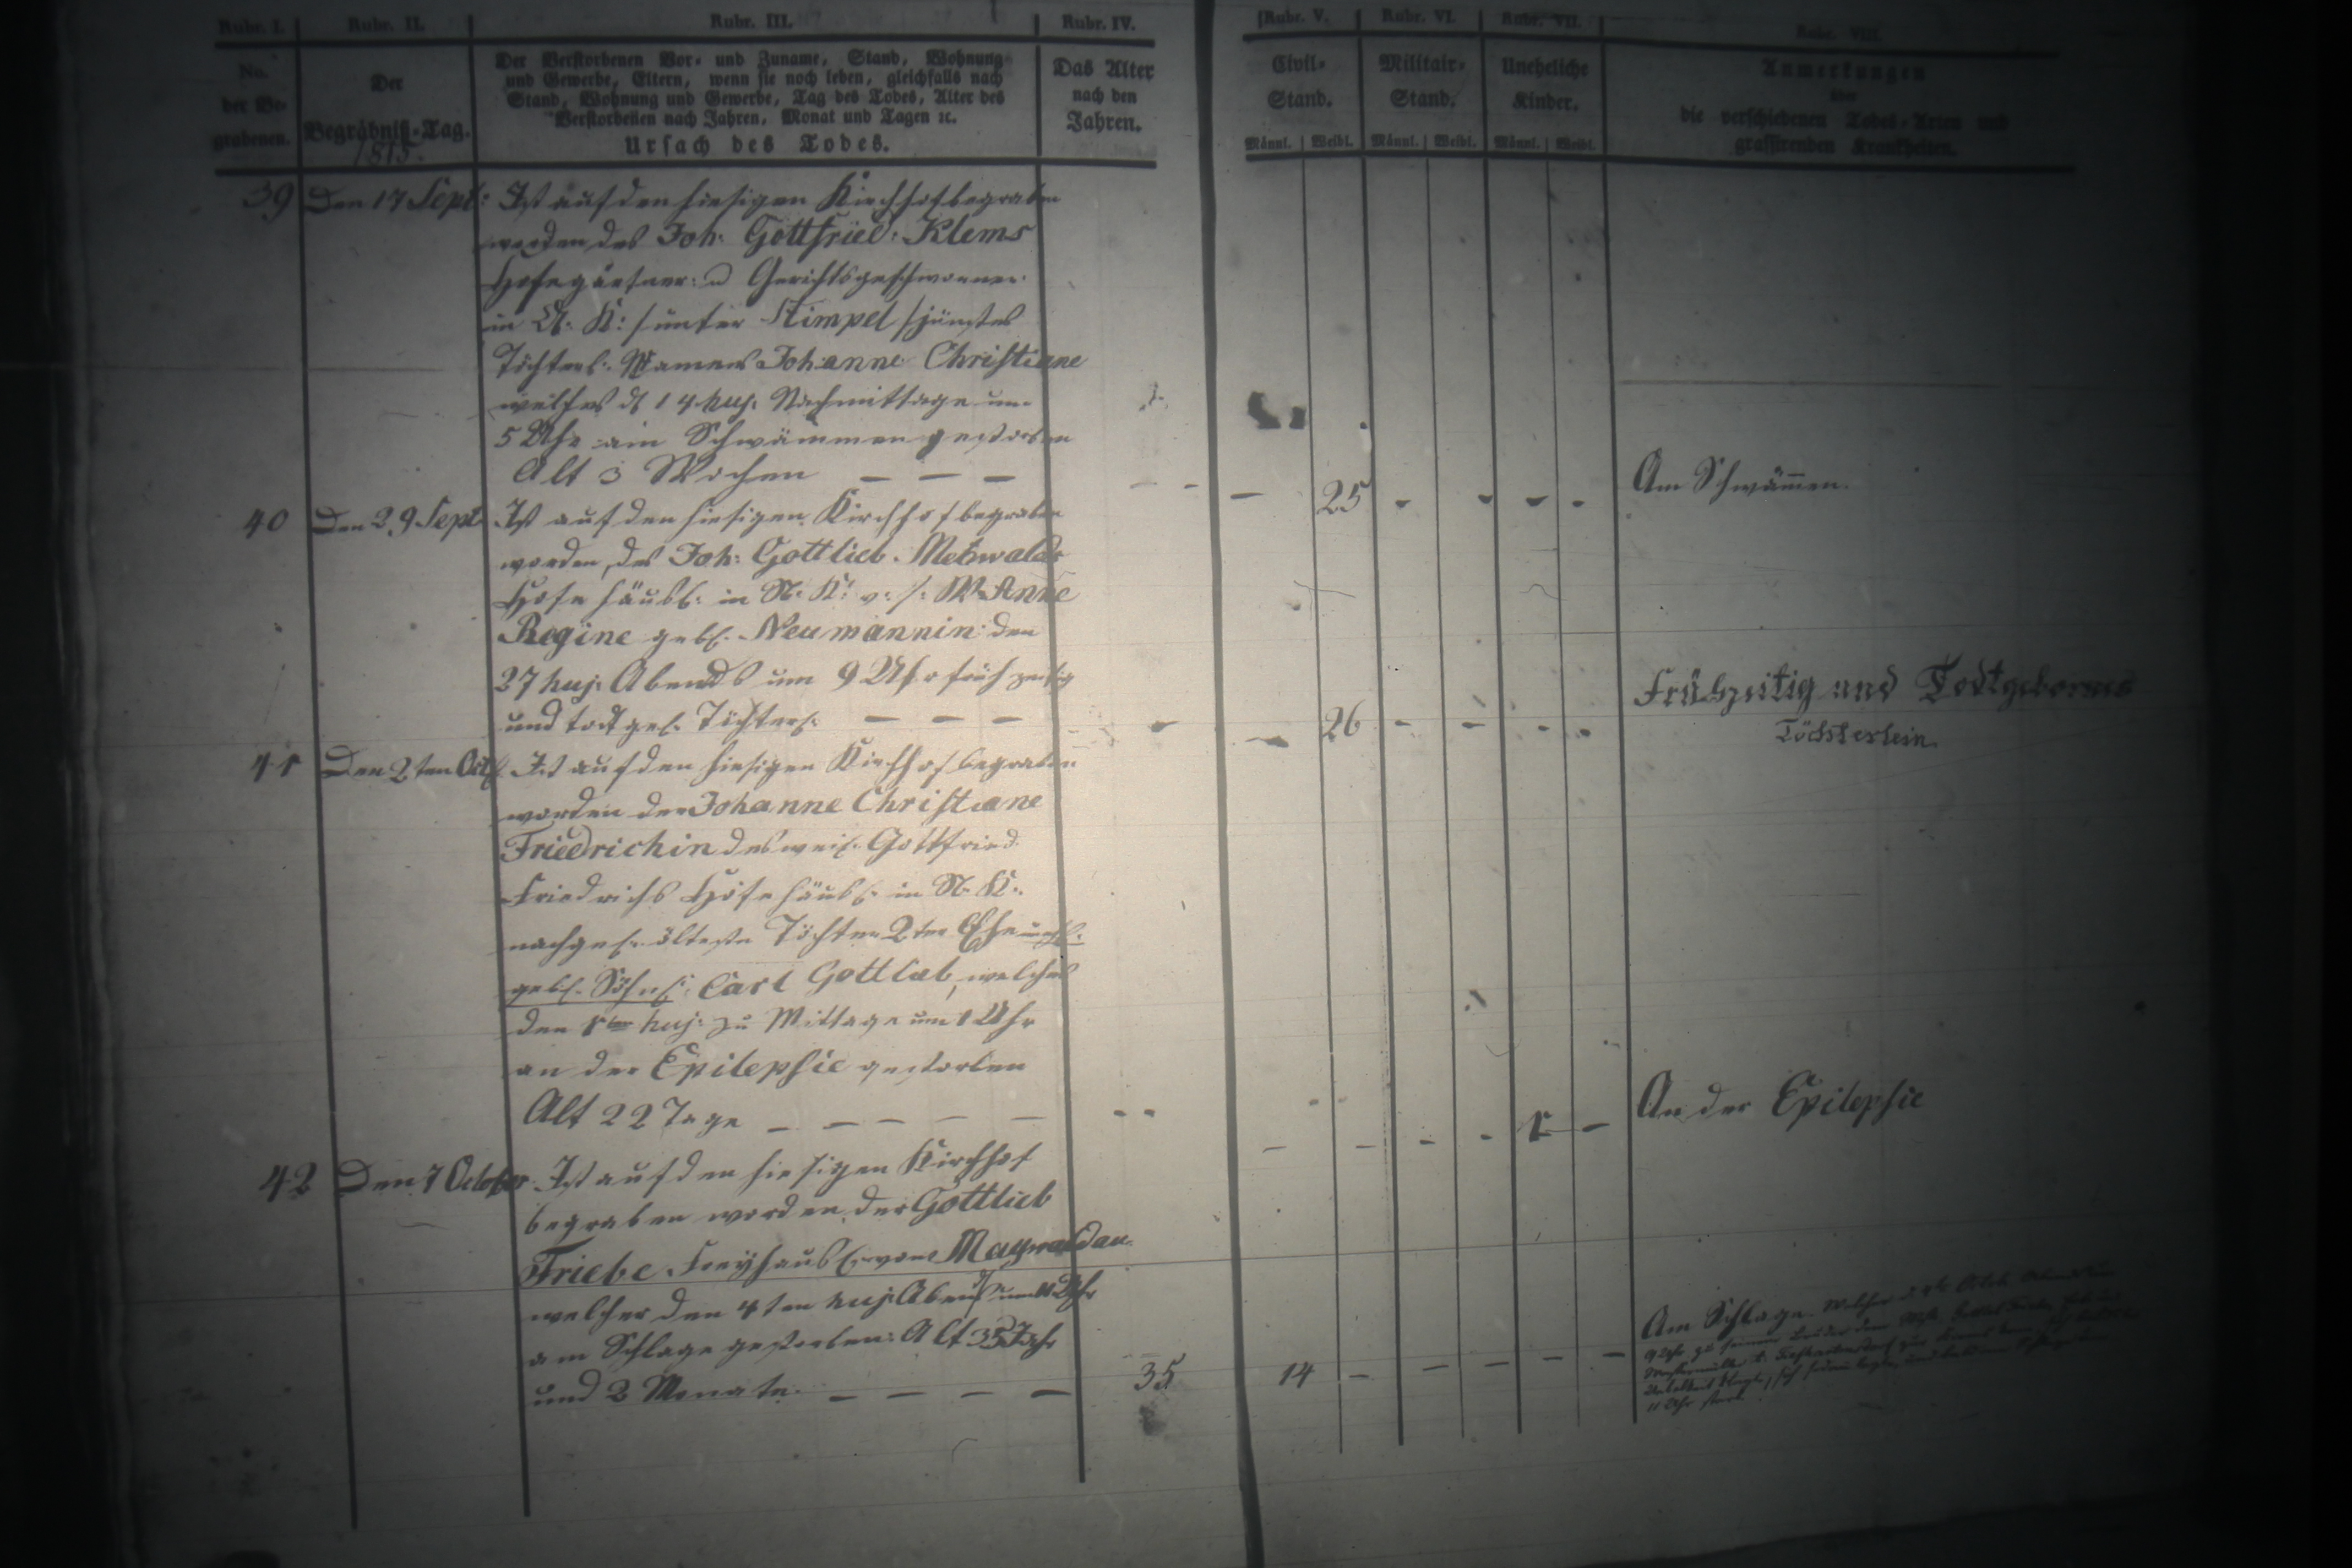 Rubr. I. Rubr. II. Rubr. III. Rubr. IV. Rubr. V. Rubr. VI. Rubr. VII. Rubr. VIII.
No. der Begrabenen.
Der Begräbniß-Tag.
1815.
Der Verstorbenen Vor- und Zuname, Stand, Wohnung
und Gewerbe, Eltern, wenn sie noch leben, gleichfalls nach
Stand, Wohnung und Gewerbe, Tag des Todes, Alter des
Verstorbenen nach Jahren, Monat und Tagen ꝛc.
Ursach des Todes.
Das Alter
nach den
Jahren.
Civil-
Stand.
Männl. Weibl.
Militair-
Stand.
Männl. Weibl.
Uneheliche
Kinder.
Männl. Weibl.
Anmerkungen
über
die verschiedenen Todes-Arten und
grassirenden Krankheiten.
39 Den 17 Sept: Ist auf den hiesigen Kirchhof begraben
worden des Joh: Gottfried: Klems
Hofegärtner: u Gerichtsgeschworner
in K: /unter Stimpel/ jüngstes
Töchterl: Namens Johanne Christiane
welches d 14 huj: Nachmittage um
5 Uhr am Schwämmen gestorben
Alt 3 Wochen — — —
— 25 - - - -
Am Schwäm̄en.
40 Den 29 Sept Ist auf den hiesigen Kirchhof begraben
worden, des Joh: Gottlieb. Metzwalds
Hofehäusl: in N. K: v. s. W. Anne
Regine gebl. Neumannin den
27 huj: Abends um 9 Uhr frühzeitig
und todtgeb. Töchterl: — — —
— 26 - - - -
Frühzeitig und Todtgebornes
Töchterlein.
41 Den 2ten Octb Ist auf den hiesigen Kirchhof begraben
worden der Johanne Christiane
Friedrichin des weil. Gottfried
Friedrichs Hofehäusl: in N. K.
nachgel. älteste Tochter 2ter Ehe unehl:
gebl. Söhnl: Carl Gottlieb, welches
den 1ten huj: zu Mittage um 1 Uhr
an der Epilepsie gestorben
Alt 22 Tage — — — — —
— - - - 1 -
An der Epilepsie
42 Den 7 October Ist auf den hiesigen Kirchhof
begraben worden, der Gottlieb
Friebe Freyhäusl. von Maywaldau
welcher den 4ten huj: Abends um 11 Uhr
am Schlage gestorben: Alt 35 Jahr
und 2 Monate. — — — —
35 14 — — — — —
Am Schlage. Welcher
11 Uhr starb